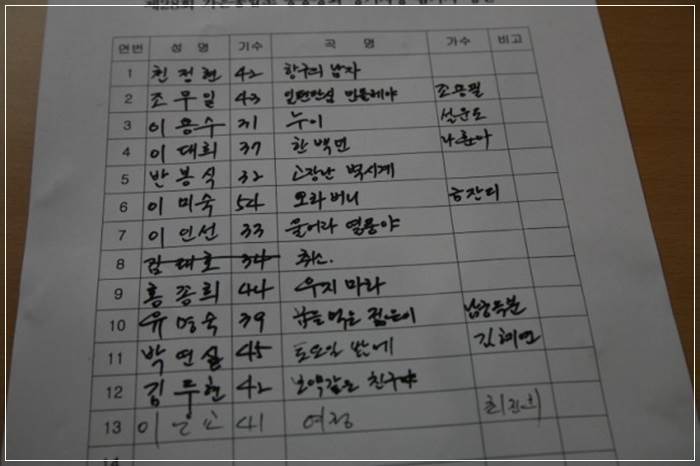 연번 성 명 기수 곡 명 가수 비고
1 친정현 42 항구의 남자
2 조무일 43 일편단심 민들레야 조용필
3 이용수 31 누이 설운도
4 이대희 37 한 백년 나훈아
5 반봉식 32 고장난 벽시계
6 이미숙 54 오라버니 금잔디
7 이인선 33 울어라 열풍아
8 김태호 34 취소.
9 홍종희 44 우지 마라
10 유명숙 39 먹은 젊은이
11 박연실 45 토요일 밤에 김혜연
12 김두현 42 보약같은 친구야
13 이 41 여정
14